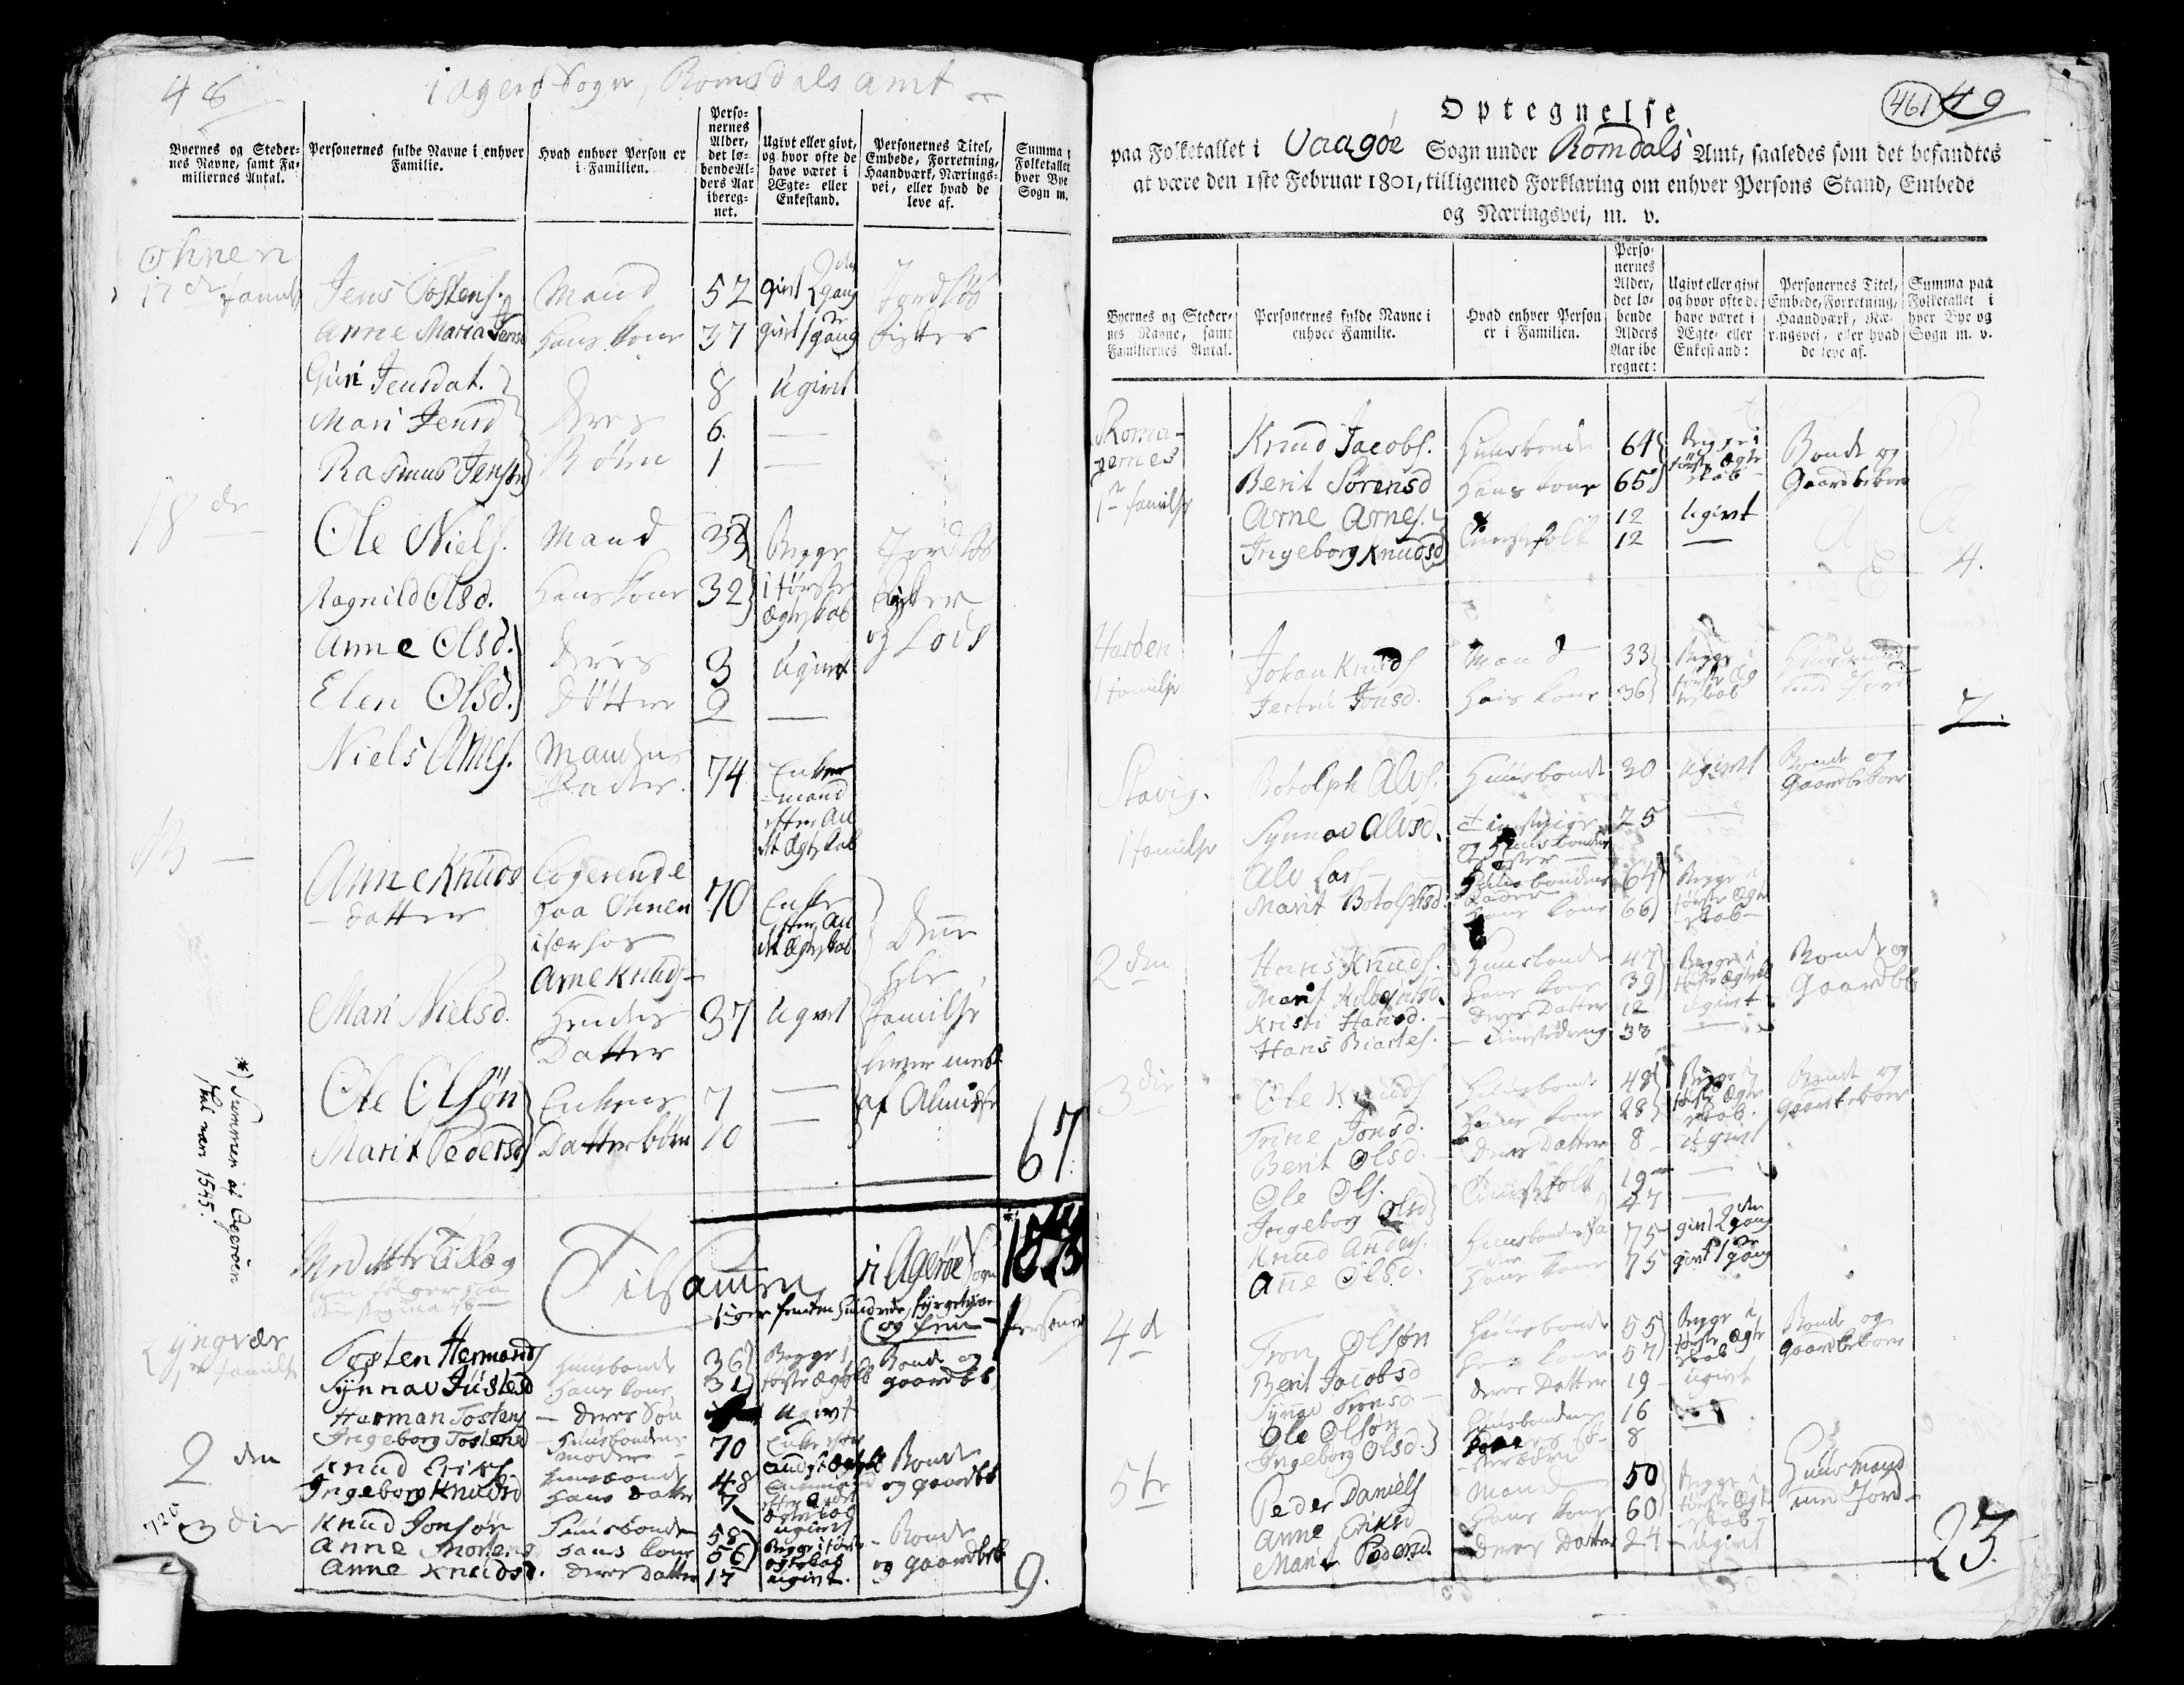 48
i agerø Sogn, Romsdals amt
Byernes og Steder-
nes Navne, samt Fa-
miliernes Antal.
Personernes fulde Navne i enhver
Familie.
Hvad enhver Person er
i Familien.
Perso-
nernes
Alder,
det lø-
bende Al-
ders Aar
ibereg-
net.
Ugivt eller givt,
og hvor ofte de
have været i
Ægte- eller
Enkestand.
Personernes Titel,
Embede, Forretning,
Haandværk, Nærings-
vei, eller hvad de
leve af.
Summa
Folketallet
hver Bye
Sogn m.
Ohnen
17de Famili Jens Tostens. Mand 52 givt 2den gang Jordløs
Anne Maria Hans kone 37 givt 1 gang fisker
Guri Jensdat. 8 ugivt
Mari Jensd deres 6 —
Rasmus Jensøn Børn 1 —
18de Ole Niels. Mand 33 Begge Jordløs
Ragnild Olsd. Hans kone 32 i første Ægteskab fisker og Lods
Anne Olsd. deres 3 ugivt
Elen Olsd. Døttre 9 —
Niels Arnes. Mandens Fader 74 Enkemand efter Ægteskab
Anne Knuds datter Logerende paa Ohnen 70 Enke efter Ægteskab
især hos
Arne Knuds-
Denne
hele
Familje
lever mest
af Almisse
Mari Nielsd. Hendes Datter 37 ugivt
Ole Olsøn Enkens 7 —
Marit Pedersd Datterbørn 10 —
67
*) Summen af Ageröen
skal være 1545.
Tilsammen i Agerøe Sogn
siger femten hundrede, fyrgetyve
og fem Personer
Lyngvær
1te familie Tosten Hermands Huusbonde 36 Begge i Bonde og
Synnav Justesd Hans kone 31 første Ægteskb gaardbb
Harman Tostens — deres Søn ugivt
Ingeborg Tostensd Huusbondens moder 70
2den Knud Eriks Huusbonde 48 Bonde
Ingeborg Knudsd Hans Datter 7 og gaardbb
ugivt
720
3die Knud Jonsøn Huusbonde 58 Begge i første Bonde
Anne Mons Hans kone 56 og gaardbeb
Anne Knudsd. deres Datter 17 ugivt.
9.
461 49
Optegnelse
paa Folketallet i Vaagøe Sogn under Romdals Amt, saaledes som det befandtes
at være den 1ste Februar 1801, tilligemed Forklaring om enhver Persons Stand, Embede
og Næringsvei, m. v.
Byernes og Steder-
nes Navne, samt
Familiernes Antal.
Personernes fulde Navne i
enhver Familie.
Hvad enhver Person
er i Familien.
Perso-
nernes
Alder,
det lø-
bende
Alders
Aar ibe
regnet:
Ugivt eller givt
og hvor ofte de
have været i
Ægte- eller
Enkestand:
Personernes Titel,
Embede, Forretning,
Haandværk, Næ-
ringsvei, eller hvad
de leve af.
Summa paa
Folketallet i
hver Bye og
Sogn m. v.
Knud Jacobs. Huusbonde 64 Begge i Bonde og
1te familje Berit Sørensd Hans kone 65 første Ægteskab Gaardbeboer
Arne Arnes. 12 ugivt
Ingeborg Knudsd Tienestefolk 12 —
4.
Harden Johan Knuds Mand 33 Begge i Huusmand
1 familje Jertrü Jonsd. Hans kone 36 første Ægteskab med Jord
2.
Stavig. Botolph Alvs. Huusbonde 30 ugivt Bonde og Gaardbeboer
1 familje Synnav Alvsd. tienistpige 25 —
og Huusbondens søster
Alv Lars- Huusbondens Fader 64 Begge i
Marit Botolphsd. Hans kone 66 første Ægteskab
2den Hans Knuds. Huusbonde 47 Begge i Bonde og
Marit Hans kone 39 første Ægteskb Gaardbb
Kristi Hansd. deres Datter 12 ugivt
Hans tienistedreng 33 —
3die Ole Knuds Huusbonde 48 Begge i Bonde og
Trine Jonsd. Hans kone 28 første Ægteskab. Gaardbeboer
Berit Olsd deres Datter 8 ugivt
Ole Ols. Tienistefolk 19 —
Ingeborg Olsd 47 —
Knud Anders. Huusbondens Fader 75 givt 2den gang
Anne Olsd. Hans kone 75 givt 1 gang
4de Tron Olsøn Huusbonde 55 Begge i Bonde og
Berit Jacobsd Hans kone 57 første Ægteskab gaardbeboer
Synnav Tronsd. deres Datter 19 ugivt
Ole Olsøn Huusbondens 16 —
Ingeborg Olsd. 8
5te Peder Daniels Mand 50 Begge i Huusmand
Anne Eriksd Hans kone 60 første Ægteskab med Jord
Marit Pedersd. deres Datter 24 ugivt
23.